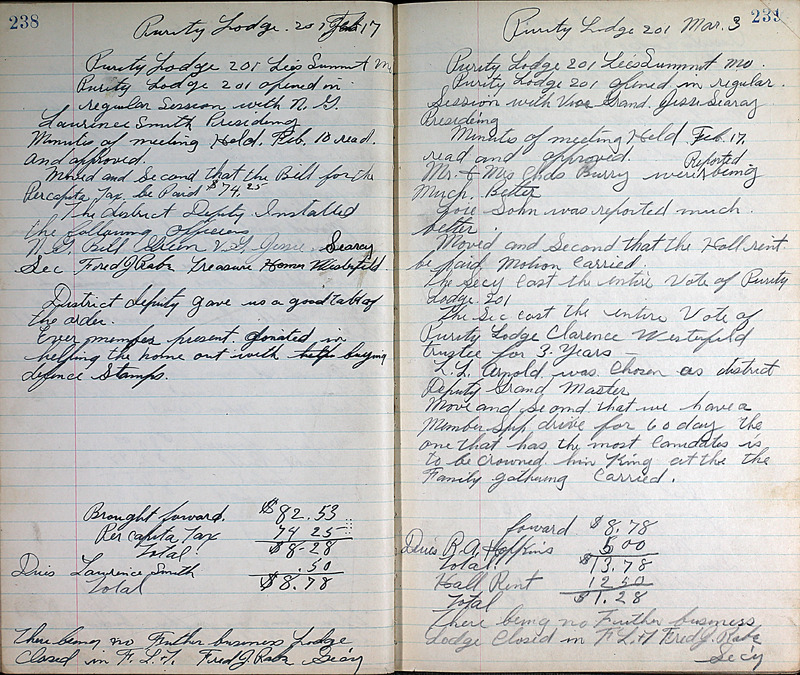 238
Purity Lodge. 201 Feb 17
Purity Lodge 201 Lee's Summit Mo
Purity Lodge 201 opened in
regular Session with N. G.
Laurince Smith Presideing
Minutes of meeting Held. Feb. 10 read.
and approved.
Moved and Second that the Bill for the
Percapita Tax, be Paid $74.25
The district Deputy Installed
the following Officiers
N. G. Bill V. G. Jessie Searcy
Sec Fred J Rabe Treasure Homer Westerfeld.
District deputy gave us a good talk of
the order.
Ever member present donated in
helping the home out with helps buying
defence Stamps.
Brought forward. $82.53
Per capita Tax 74 25
Total $8-28
Dues Lawrence Smith .50
Total $8.78
There being no Further business Lodge
Closed in F. L. T. Fred J. Rabe Sec'y
239
Purity Lodge 201 Mar. 3
Purity Lodge 201 Lee's Summit Mo.
Purity Lodge 201 opened in regular.
Session with Vice Grand. Jessie Searcy
Presideing
Minutes of meeting Held. Feb. 17,
read and approved.
Mr. & Mrs Burry were Reported being
much. Better
John was reported much
better.
Moved and Second that the Hall rent
be paid. Motion Carried.
The Secy Cast the entire Vote of Purity
Lodge. 201
The Sec cast the entire Vote of
Purity Lodge Clarence Westerfeld
trustee for 3. Years —
L. L. Arnold was Chosen as district
Deputy Grand Master
Move and second that we have a
Member Ship drive for 60 day the
one that has the most Candates is
to be Crowned him King at the the
Family gathing Carried.
forward $8.78
Dues R. A. Hopkins 5 00
Total. $13.78
Hall Rent 12 50
Total $1.28
There being no Further business
Lodge Closed in F. L. & T Fred J. Rabe
Sec'y